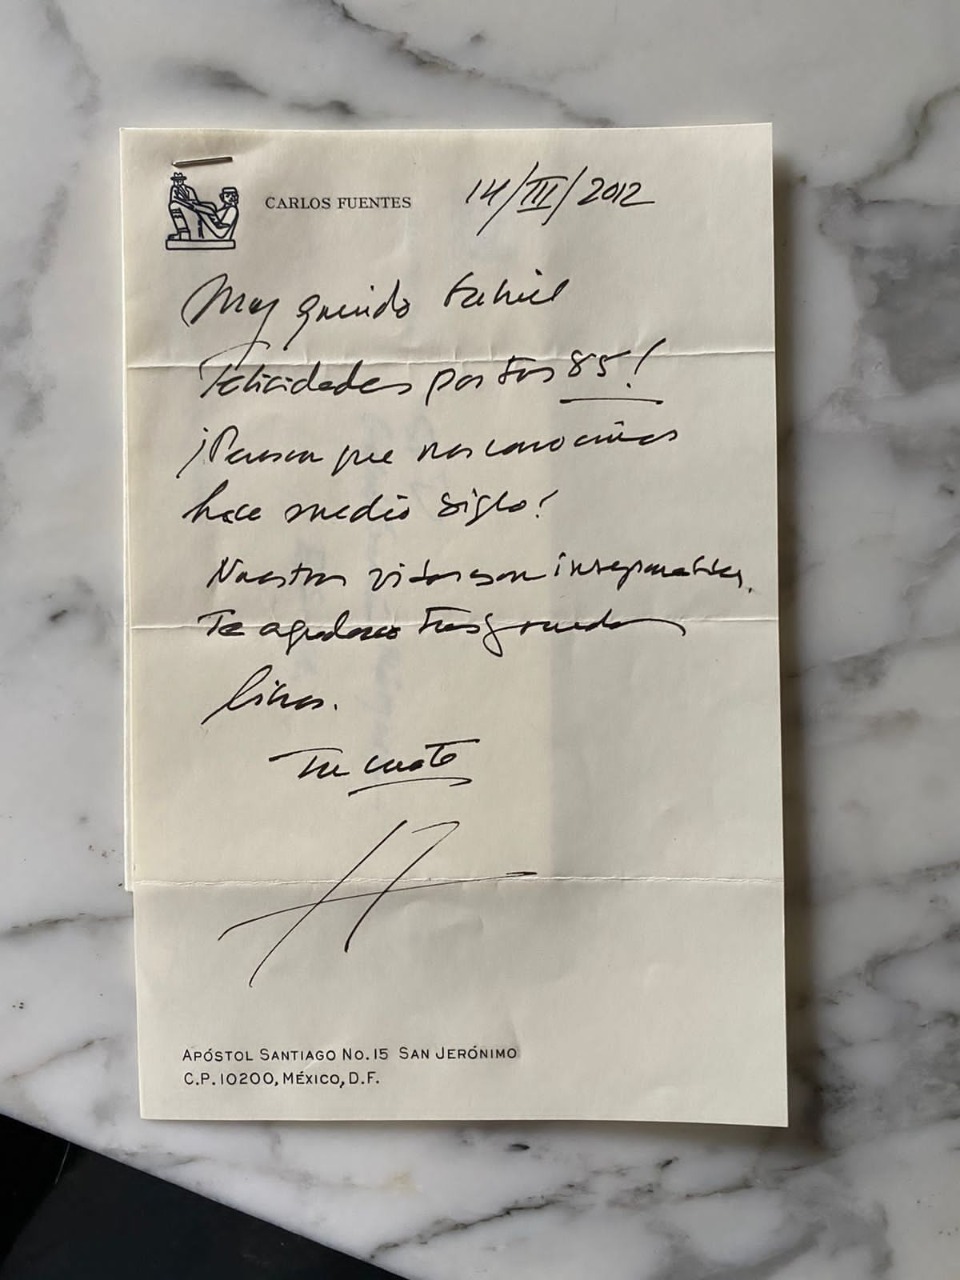 CARLOS FUENTES
14/III/2012
Muy querido Gabriel
Felicidades por tus 85!
¡Pensar que nos conocimos
hace medio siglo!
Nuestras vidas son inseparables.
Te agradezco tus grandes
libros.
Tu cuate
APÓSTOL SANTIAGO NO. 15 SAN JERÓNIMO
C.P. 10200, MÉXICO, D.F.